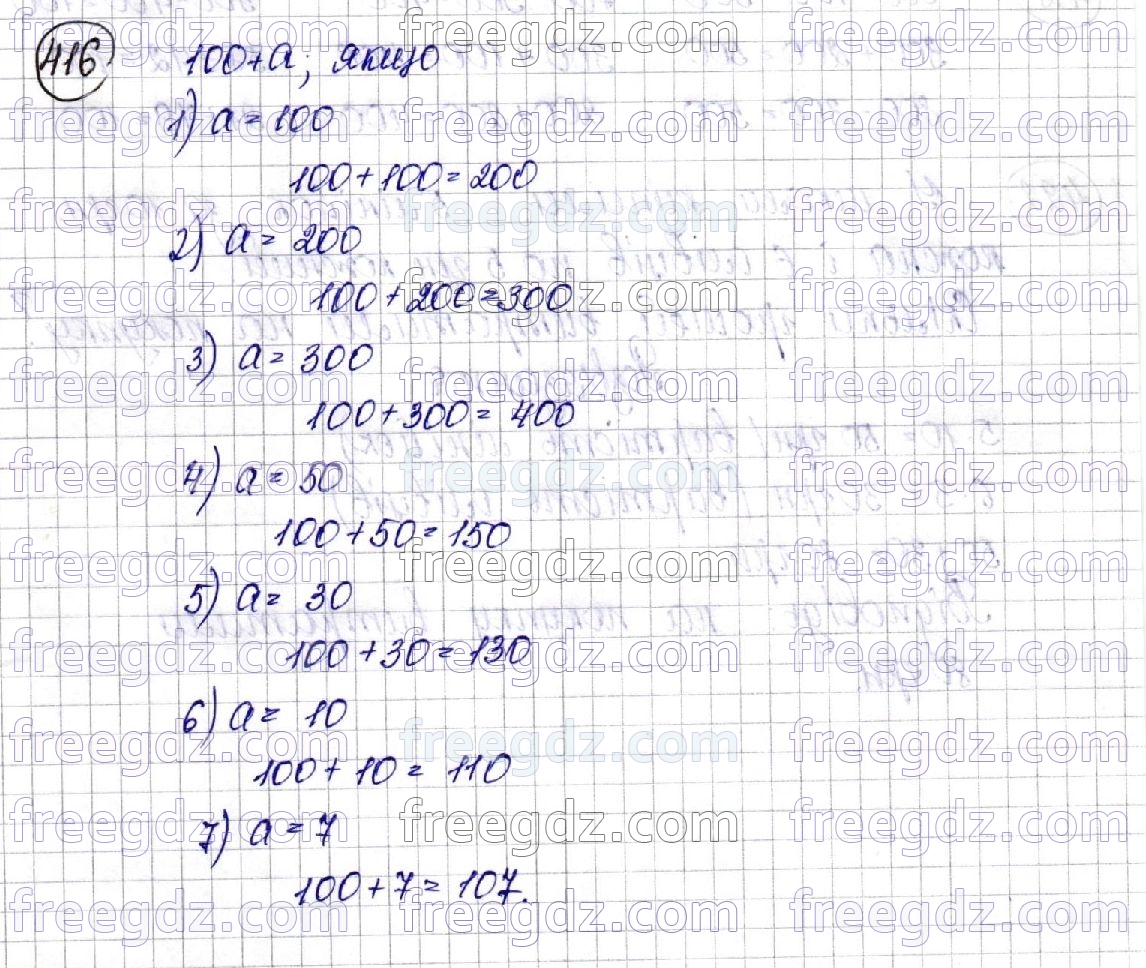 416 100+a, якщо
1) a = 100
100 + 100 = 200
2) a = 200
100 + 200 = 300
3) a = 300
100 + 300 = 400
4) a = 50
100 + 50 = 150
5) a = 30
100 + 30 = 130
6) a = 10
100 + 10 = 110
7) a = 7
100 + 7 = 107.
freegdz.com